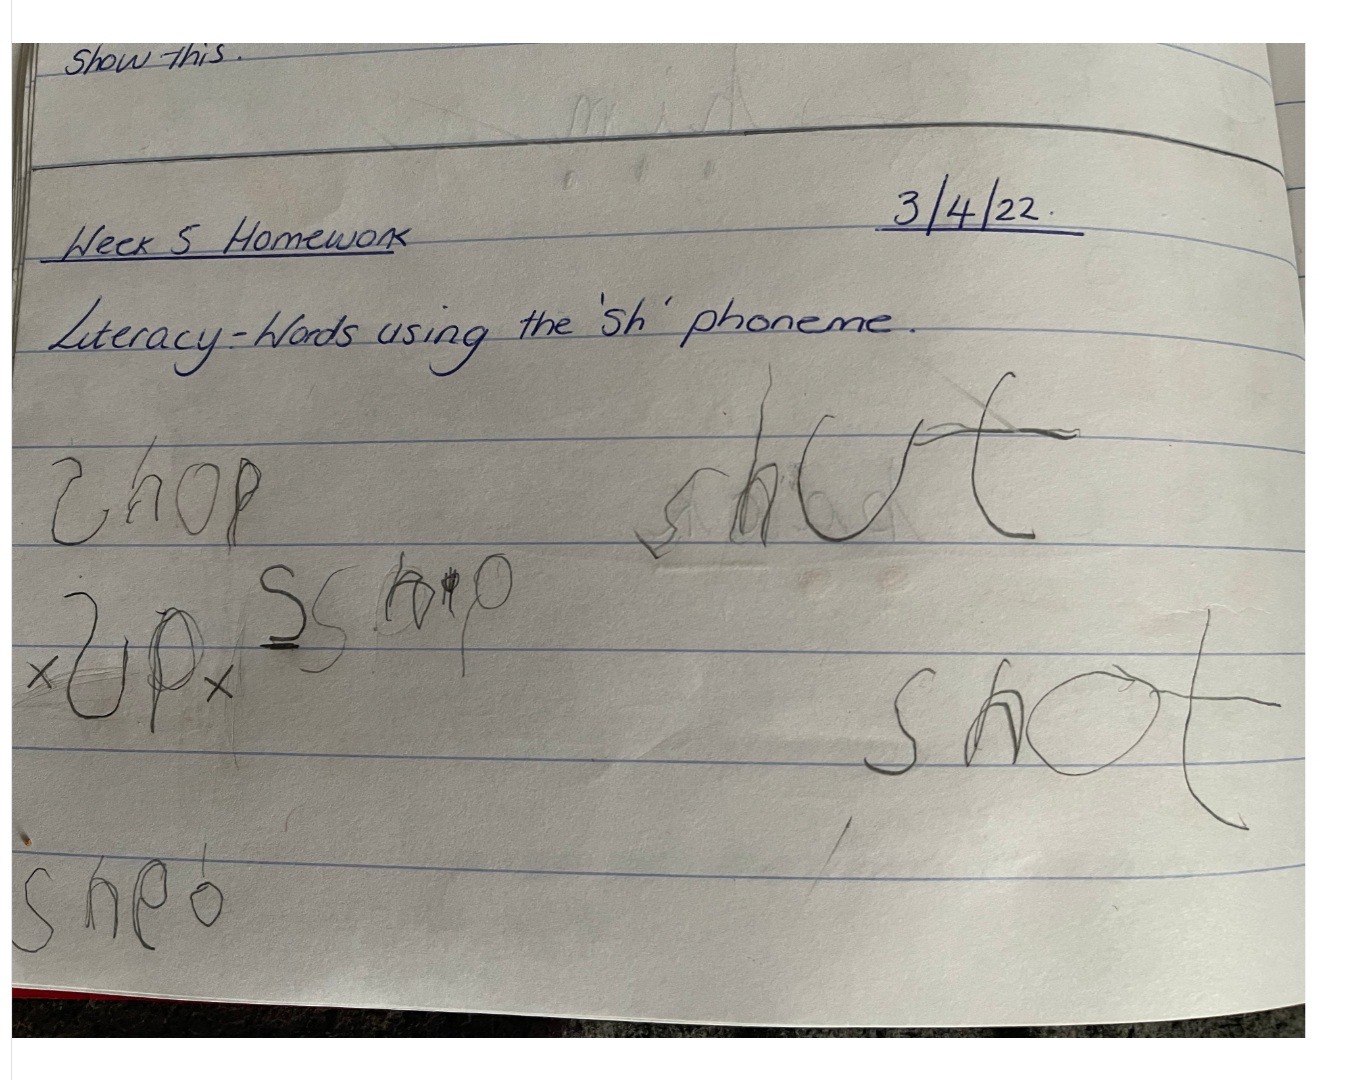 Show this.
Week 5 Homework 3/4/22.
Literacy - Words using the 'sh' phoneme.
shop shut
x up x s ship
shot
shed